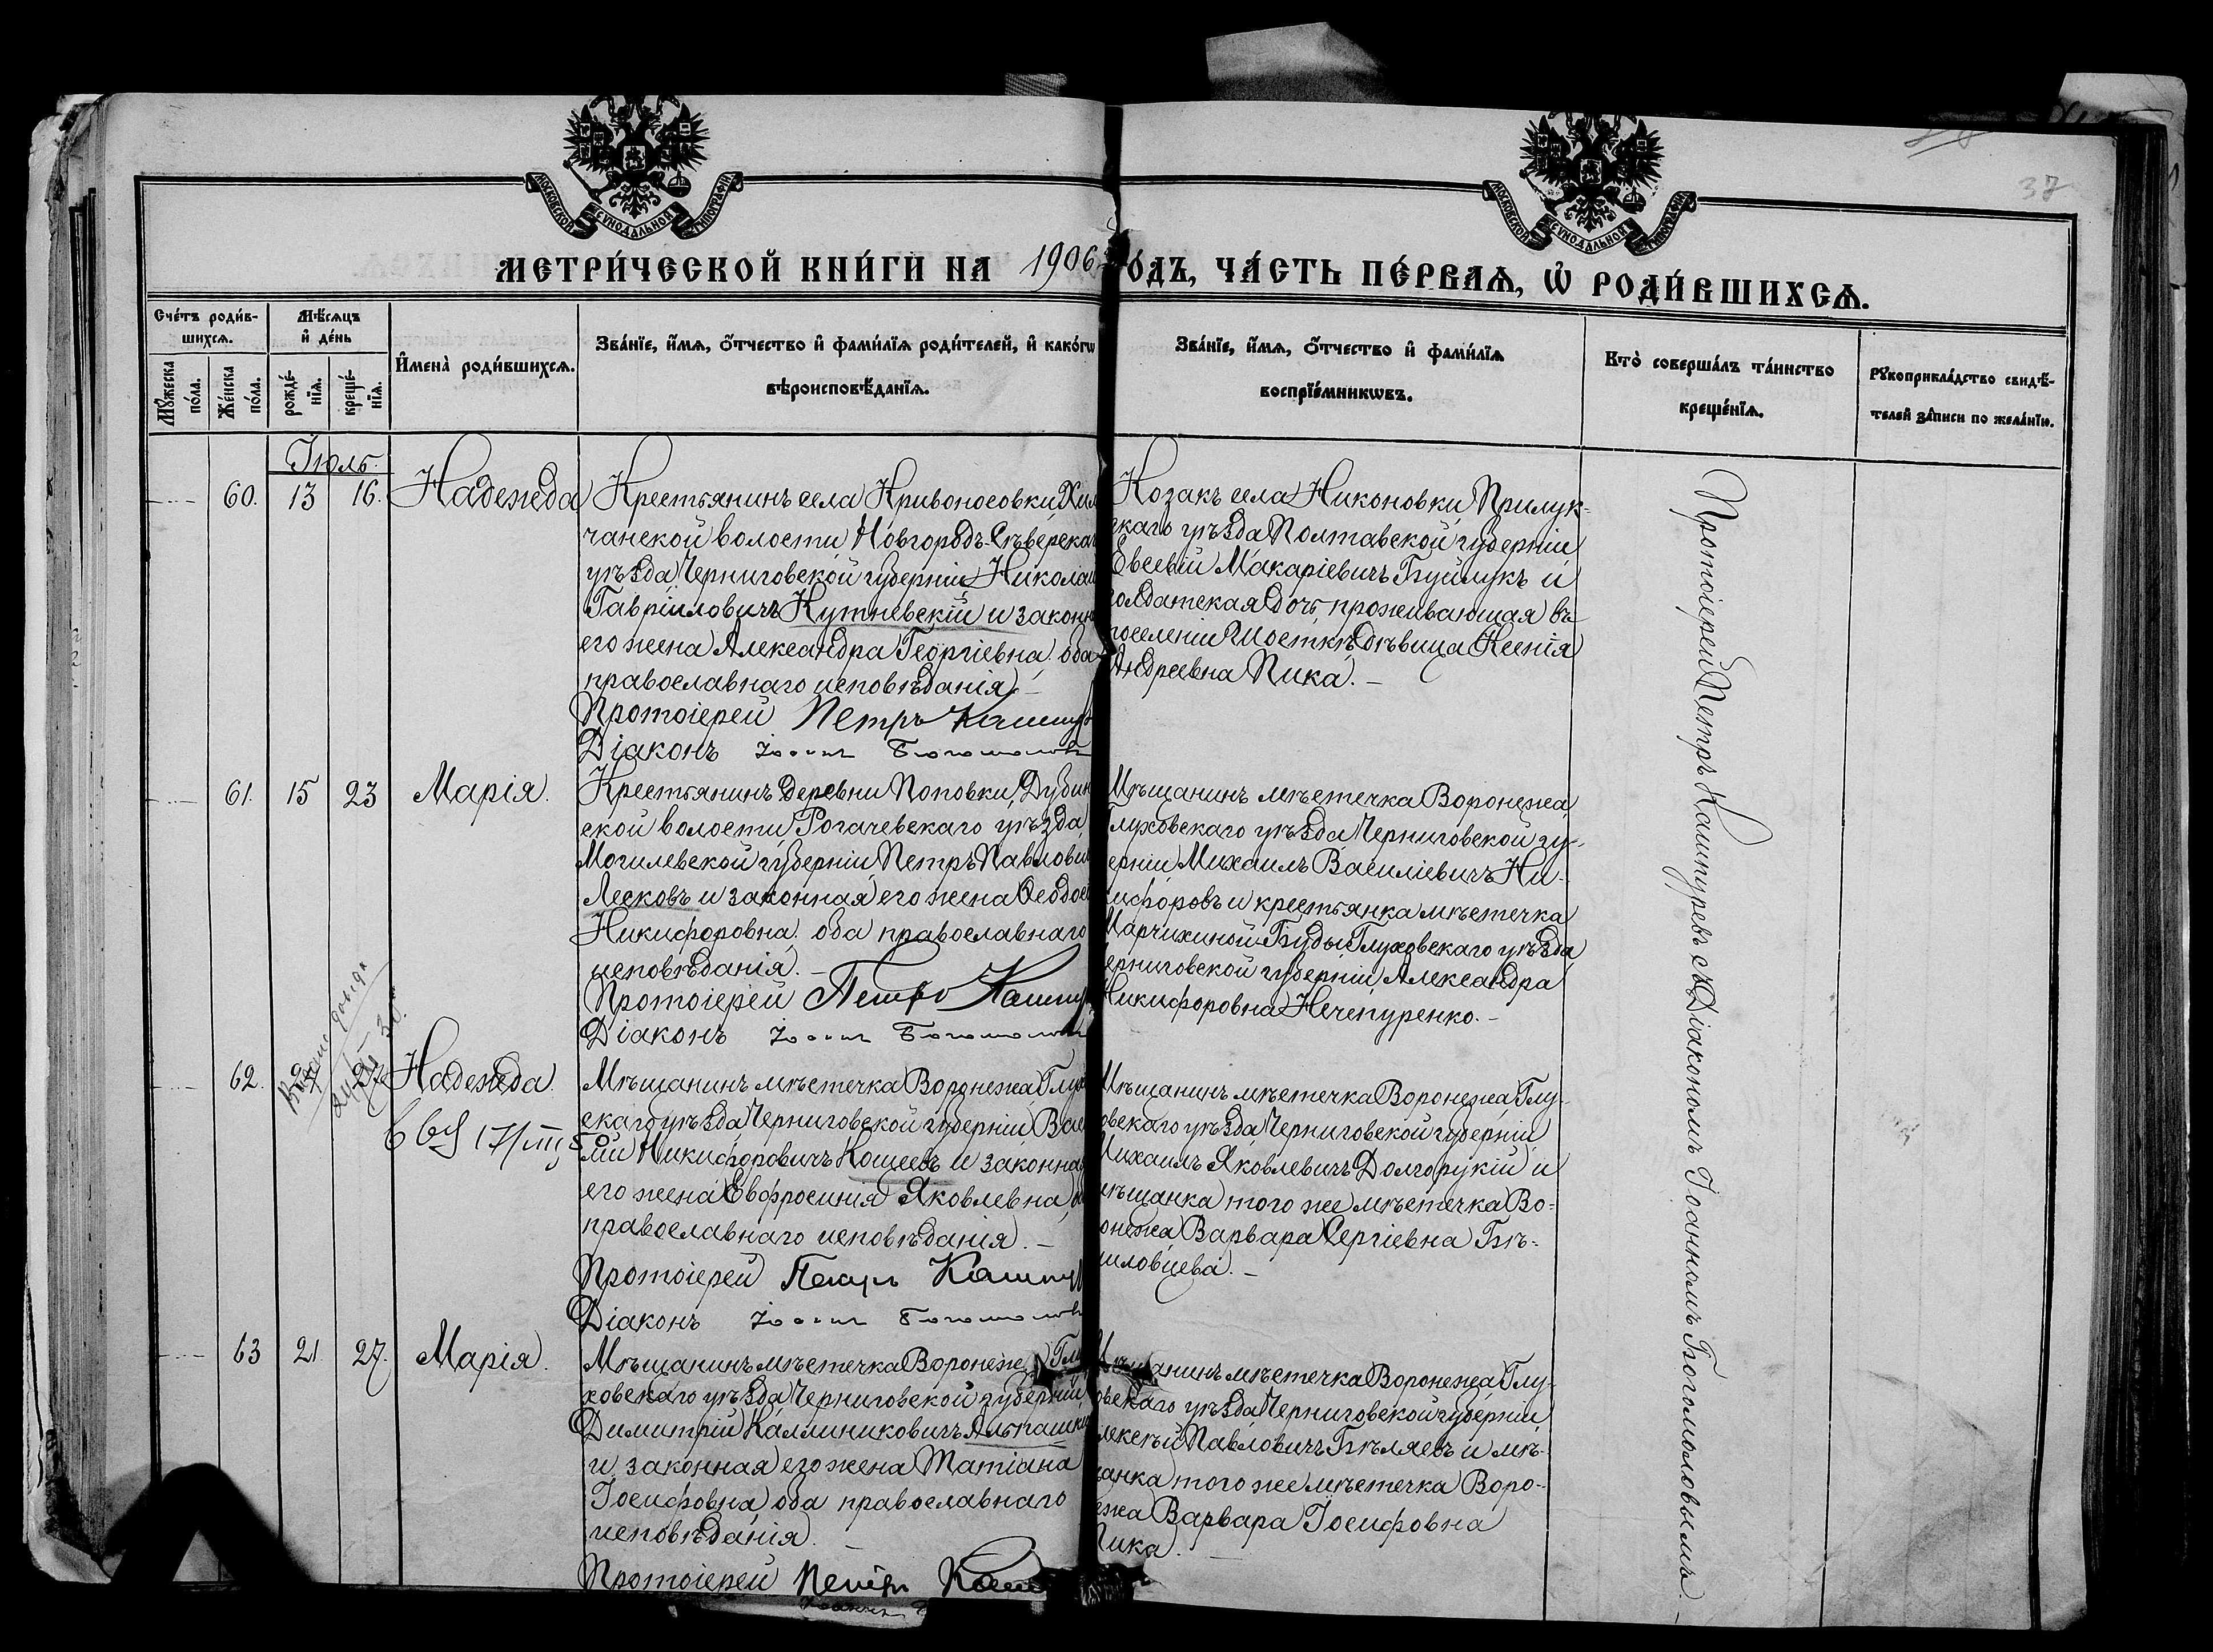 37
МОСКОВСКОЙ СѴНОДАЛЬНОЙ ТИПОГРАФІИ
МОСКОВСКОЙ СѴНОДАЛЬНОЙ ТИПОГРАФІИ
МЕТРИ́ЧЕСКОЙ КНИ́ГИ НА 1906
О́ДЪ, ЧА́СТЬ ПЕ́РВАѦ, Ѡ҆ РОДИ́ВШИХСѦ.
Сче́тъ роди́в-
шихсѧ.
Мꙋ́жеска по́ла.
Же́нска по́ла.
Мѣ́сѧцъ
и҆ де́нь
рожде́-
нїѧ.
креще́-
нїѧ.
И҆мена̀ роди́вшихсѧ.
Зва́нїе, и҆́мѧ, ѻ҆́тчество и҆ фами́лїѧ роди́телей, и҆ како́гѡ
вѣроисповѣ́данїѧ.
Зва́нїе, и҆́мѧ, ѻ҆́тчество и҆ фами́лїѧ
воспрїе́мникѡвъ.
Кто̀ соверша́лъ та́инство
креще́нїѧ.
Рꙋкоприкла́дство свидѣ́-
телей за́писи по жела́нїю.
Іюль.
60. 13 16. Надежда
Крестьянинъ села Кривоносовки, Хил
чанской волости Новгородъ-Сѣверска
уѣзда Черниговской губерніи Никола
Гавріиловичъ Кутневскій и законн
его жена Александра Георгіевна, оба
православнаго исповѣданія. –
Протоіерей Петръ Кашпур
Діаконъ Іоанн Богомолов
Козакъ села Никоновки, Прилук-
скаго уѣзда Полтавской губерніи
Евсевій Макаріевичъ Буймукъ и
солдатская дочь, проживающая въ
поселеніи Шосткѣ дѣвица Ксенія
Андреевна Пика. –
61. 15 23 Марія.
Крестьянинъ деревни Поповки, Дубин
ской волости Рогачевскаго уѣзда
Могилевской губерніи, Петръ Павлови
Лесковъ и законная его жена Ѳеодос
Никифоровна, оба православнаго
исповѣданія. –
Протоіерей Петръ Кашпу
Діаконъ Іоанн Богомолов
Мѣщанинъ мѣстечка Воронежа,
Глуховскаго уѣзда Черниговской гу-
ерніи Михаилъ Василіевичъ Ни-
кифоровъ и крестьянка мѣстечка
Марчихиной-Буды Глуховскаго уѣзда
ерниговской губерніи, Александра
Никифоровна Нечепуренко. –
62. 27 Надежда.
17/III
Мѣщанинъ мѣстечка Воронежа Глухо
скаго уѣзда Черниговской губерніи Васи
лій Никифоровичъ Кошевъ и законна
его жена Евфросинія Яковлевна, о
православнаго исповѣданія. –
Протоіерей Петръ Кашпу
Діаконъ Іоанн Богомолов
Мѣщанинъ мѣстечка Воронежа Глу-
овскаго уѣзда Черниговской губерніи
Михаилъ Яковлевичъ Долгорукій и
мѣщанка того же мѣстечка Во-
онежа Варвара Сергіевна Бѣ-
иловцева. –
63 21. 27. Марія.
Мѣщанинъ мѣстечка Воронеже Глу
ховскаго уѣзда Черниговской губерніи,
Димитрій Каллиниковичъ Алпашки
и законная его жена Татіана
Іосифовна, оба православнаго
исповѣданія. –
Протоіерей Петръ Каш
Мѣщанинъ мѣстечка Воронежа Глу-
овскаго уѣзда Черниговской губерніи
лексѣй Павловичъ Бѣляевъ и мѣ-
анка того же мѣстечка Воро-
ежа Варвара Іосифовна
Пика. –
Протоіерей Петръ Кашпуревъ съ Діакономъ Іоанномъ Богомоловымъ. –